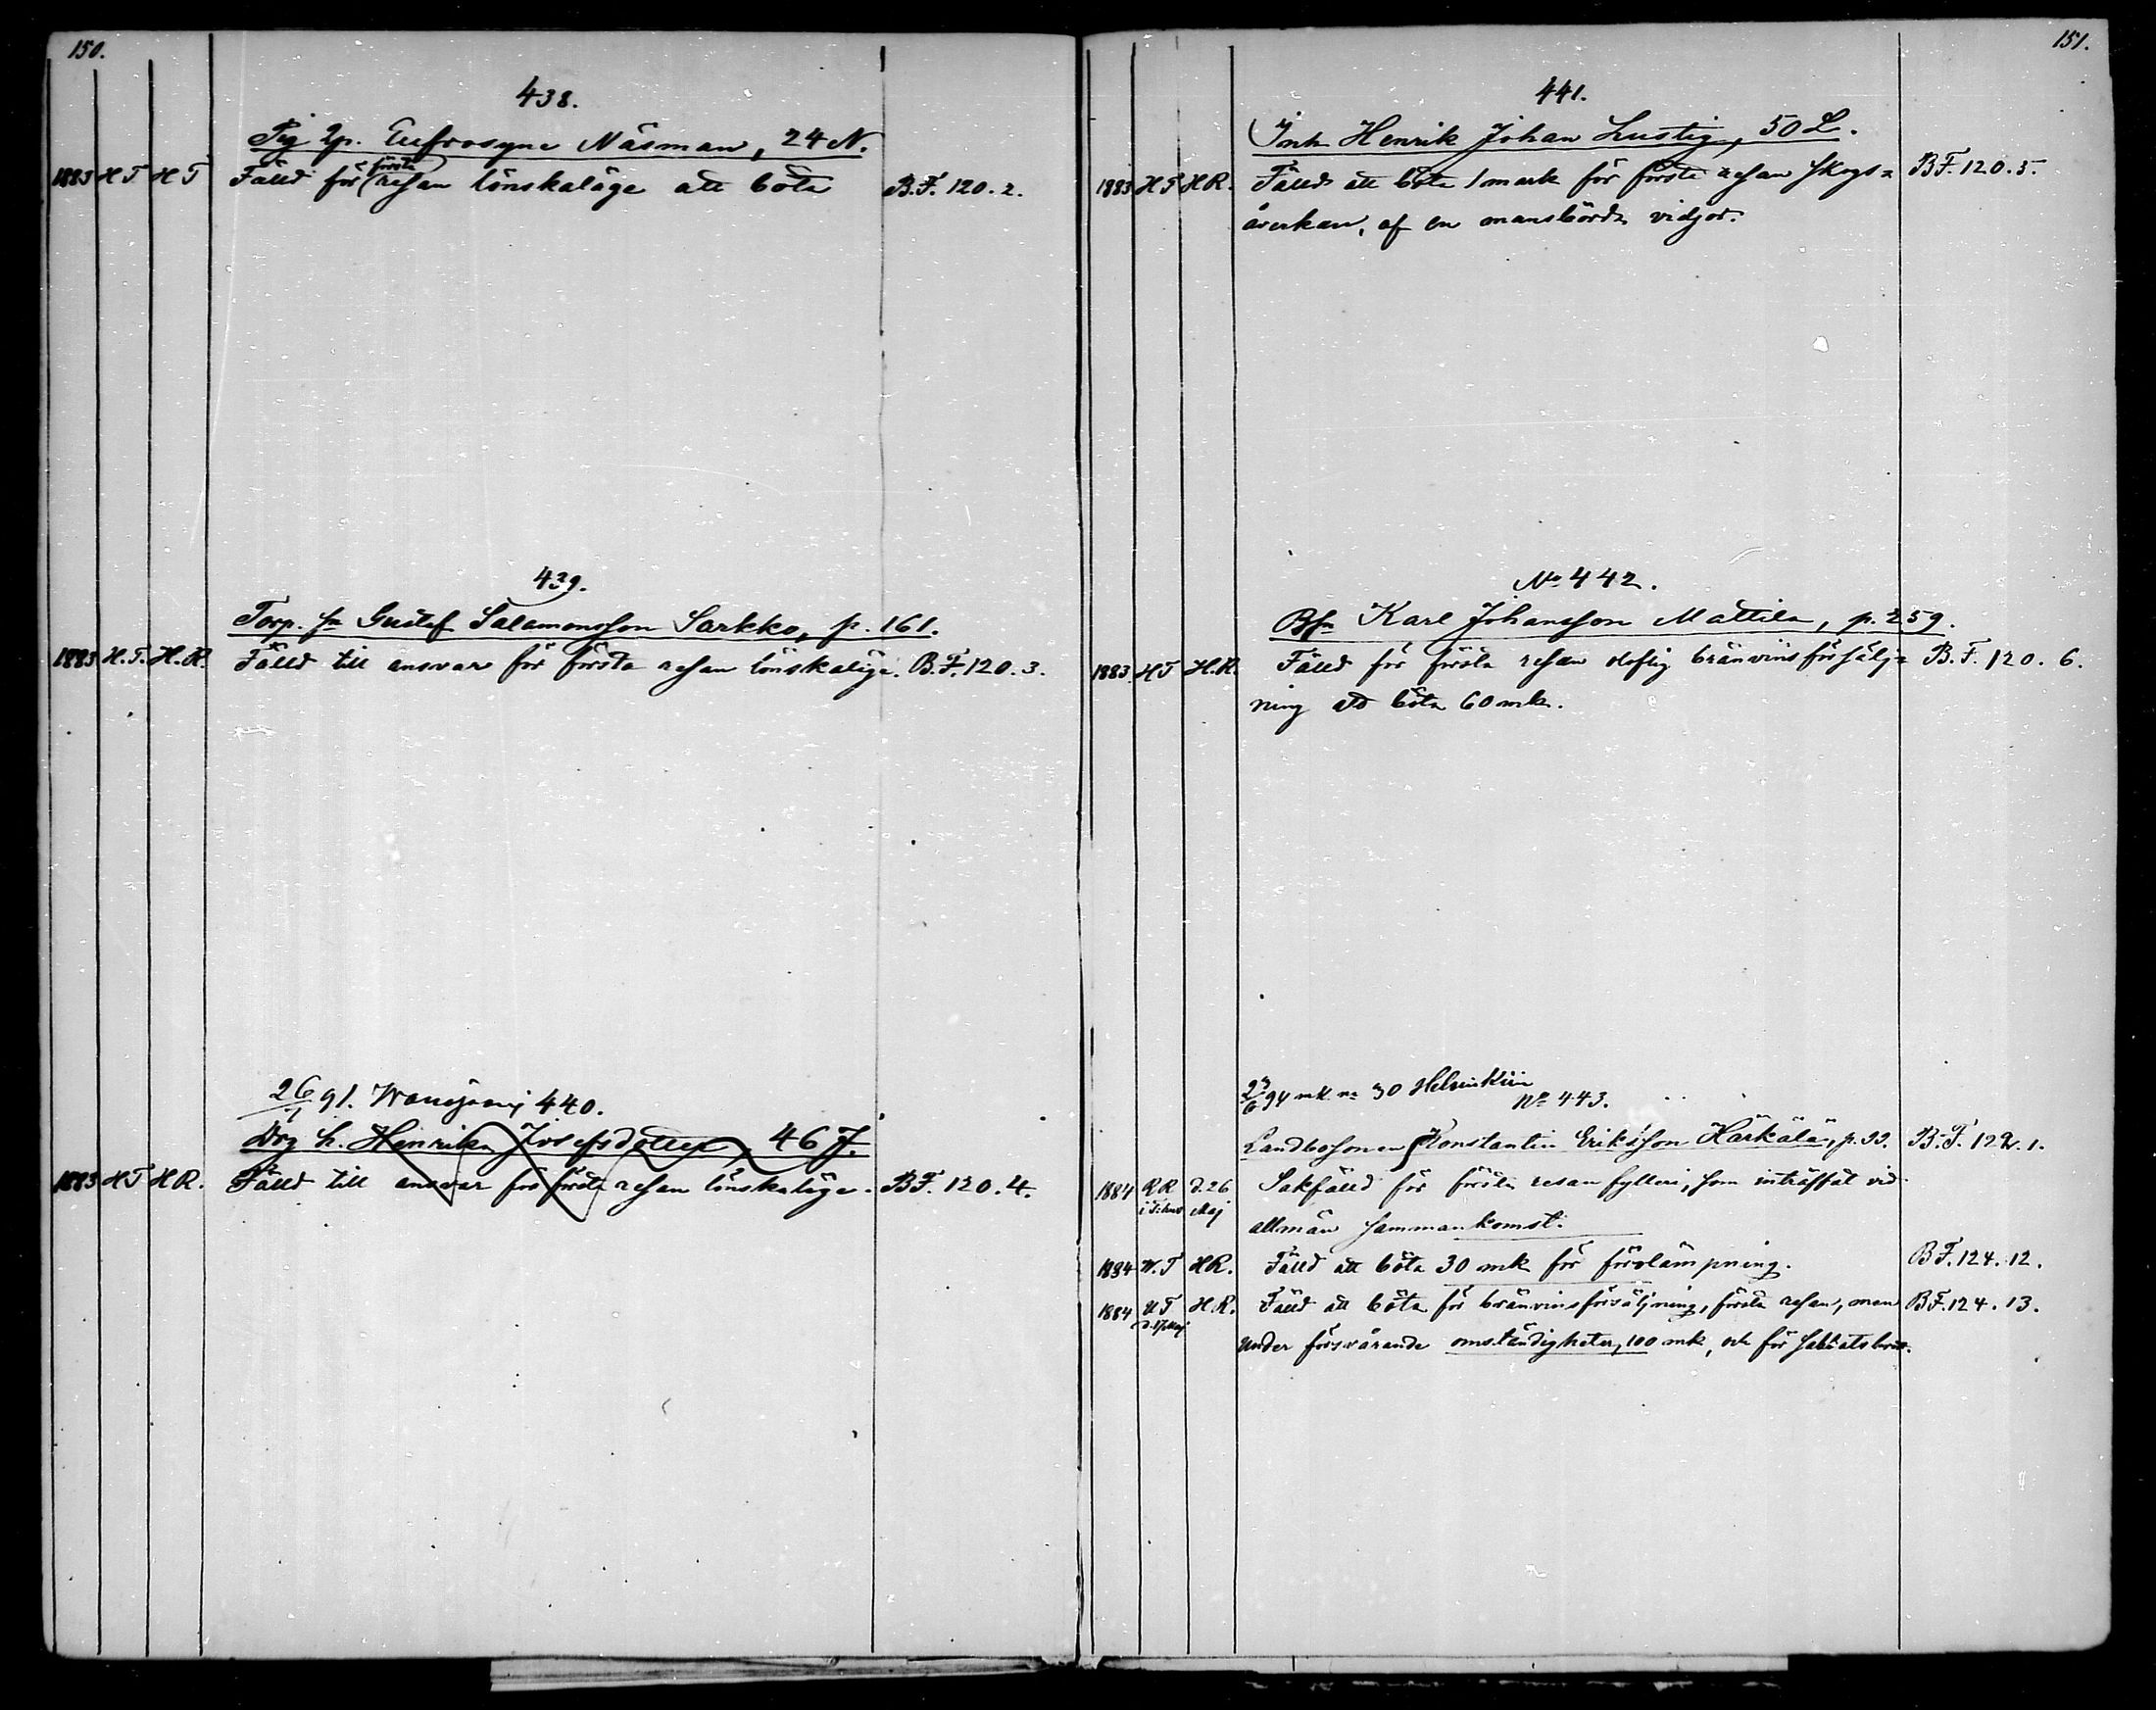 150.
438.
Pig Eufrosyne Näsman, 24 N.
1883 H T H T Fälld för första resan lönskaläge att böta B.F. 120. 2.
439.
Torp. sn Gustaf Salamonsson Sarkko, p. 161.
1883 H. T. H. R. Fälld till ansvar för första resan lönskaläge. B. F. 120. 3.
26/1 91. 440.
Drg h. Henrika Josefsdotter, 46 J.
1883 H T H R. Fälld till ansvar för första resan lönskaläge. B F. 120. 4.
151.
441.
Inh Henrik Johan Lustig, 50 L.
1883 H T H R. Fälld att böta 1 mark för första resan skogs= B F. 120. 5.
åverkan, af en mansbörda vidjor.
No 442.
Bsn Karl Johansson Mattila, p. 259.
1883 H T H. R. Fälld för första resan oloflig bränvinsförsälj= B. F. 120. 6.
ning att böta 60 mk.
94 mk no 30 Helsinkiin
No 443.
Landbosonen Konstantin Eriksson Härkälä, p. 99. B. F. 122. 1.
1884 R R d. 26 Sakfälld för första resan fylleri, som inträffat vid
Maj allmän sammankomst.
1884 W. T H R. Fälld att böta 30 mk för förolämpning. B F. 124. 12.
1884 U T H. R. Fälld att böta för bränvinsförsäljning, första resan, men B F. 124. 13.
under försvårande omständigheter, 100 mk, och för sabbatsbrott.